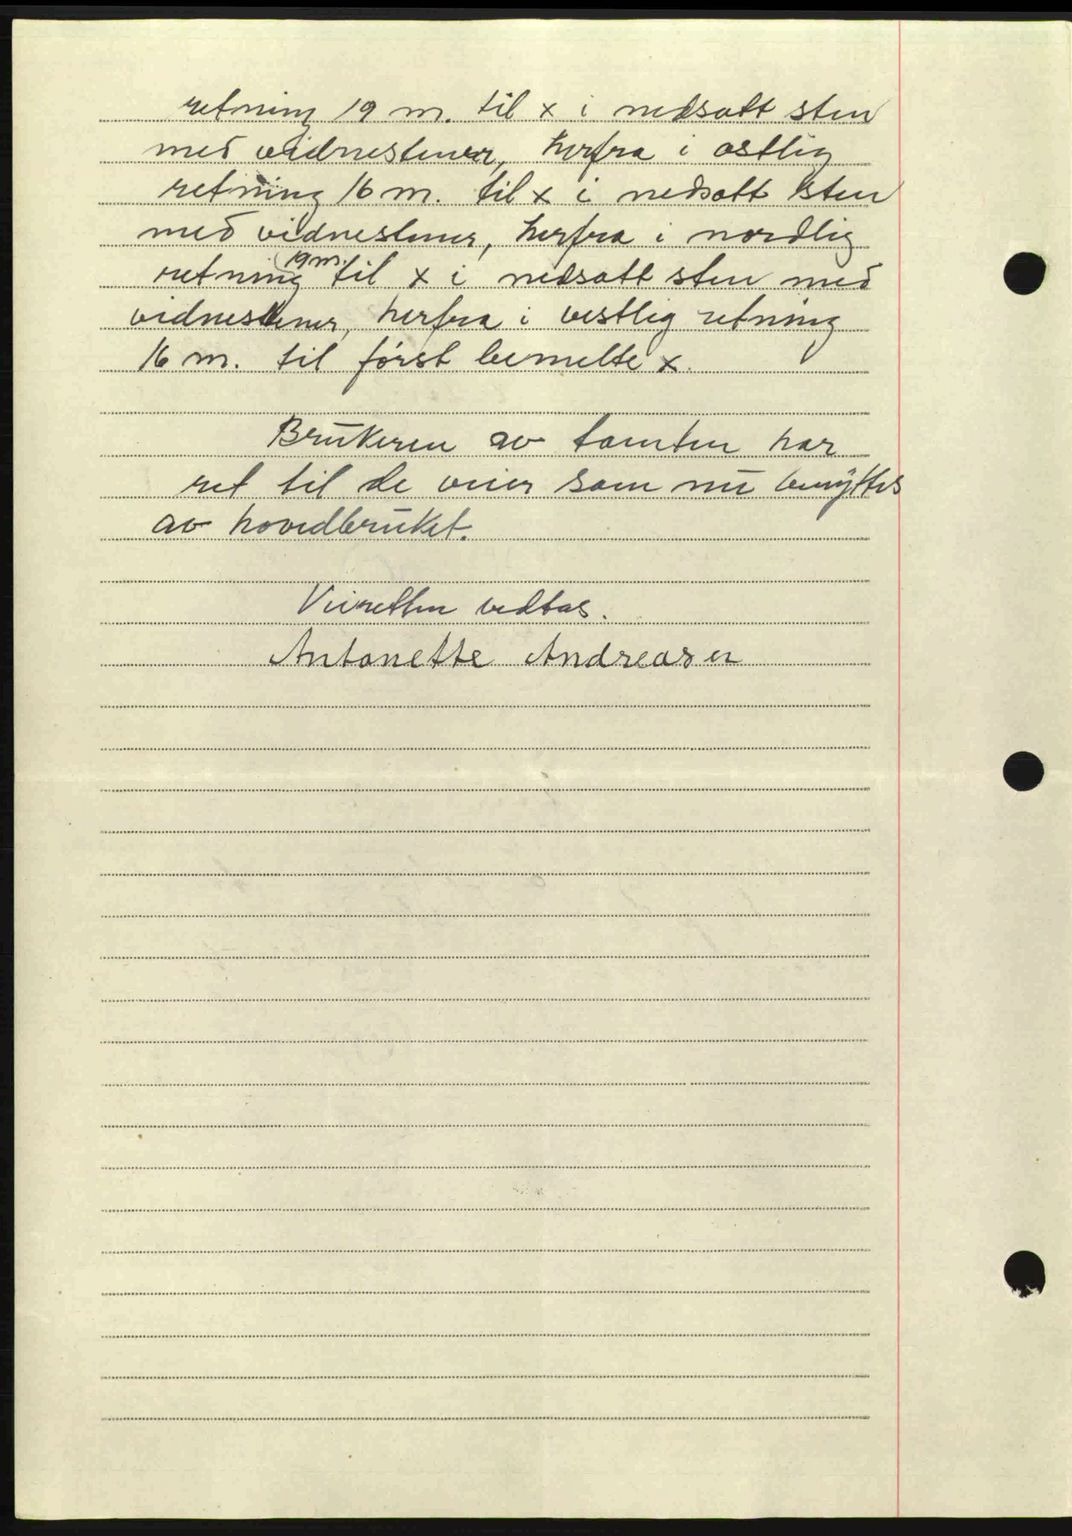 retning 19 m. til x i nedsatt sten
med vidnestener, herfra i østlig
retning 16 m. til x i nedsatt sten
med vidnestener, herfra i nordlig
retning 19 m. til x i nedsatt sten med
vidnestener, herfra i vestlig retning
16 m. til först bemelte x.
Brukeren av tomten har
ret til de veier som nu benyttes
av hovedbruket.
Veiretten vedtas.
Antonette Andreasen